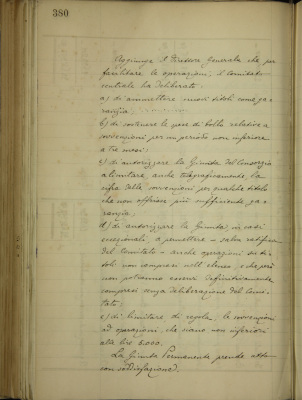 380
Aggiunge il Direttore Generale che per
facilitare le operazioni, il Comitato
centrale ha deliberato:
a) di ammettere nuovi titoli come ga-
ranzia;
b) di contenere le spese di bollo relative a
sovvenzioni per un periodo non inferiore
a tre mesi;
c) di autorizzare la Giunta del Consorzio
a limitare, anche telegraficamente, la
cifra delle sovvenzioni per qualche titolo
che non offrisse più sufficiente ga-
ranzia;
d) di autorizzare la Giunta, in casi
eccezionali, a permettere - salvo ratifica
del Comitato - anche operazioni su ti-
toli non compresi nell'elenco, che però
non potranno essere definitivamente
compresi senza deliberazione del Comi-
tato;
e) di limitare di regola, le sovvenzioni
ad operazioni, che siano non inferiori
alle lire 5.000.
La Giunta Permanente prende atto
con soddisfazione.